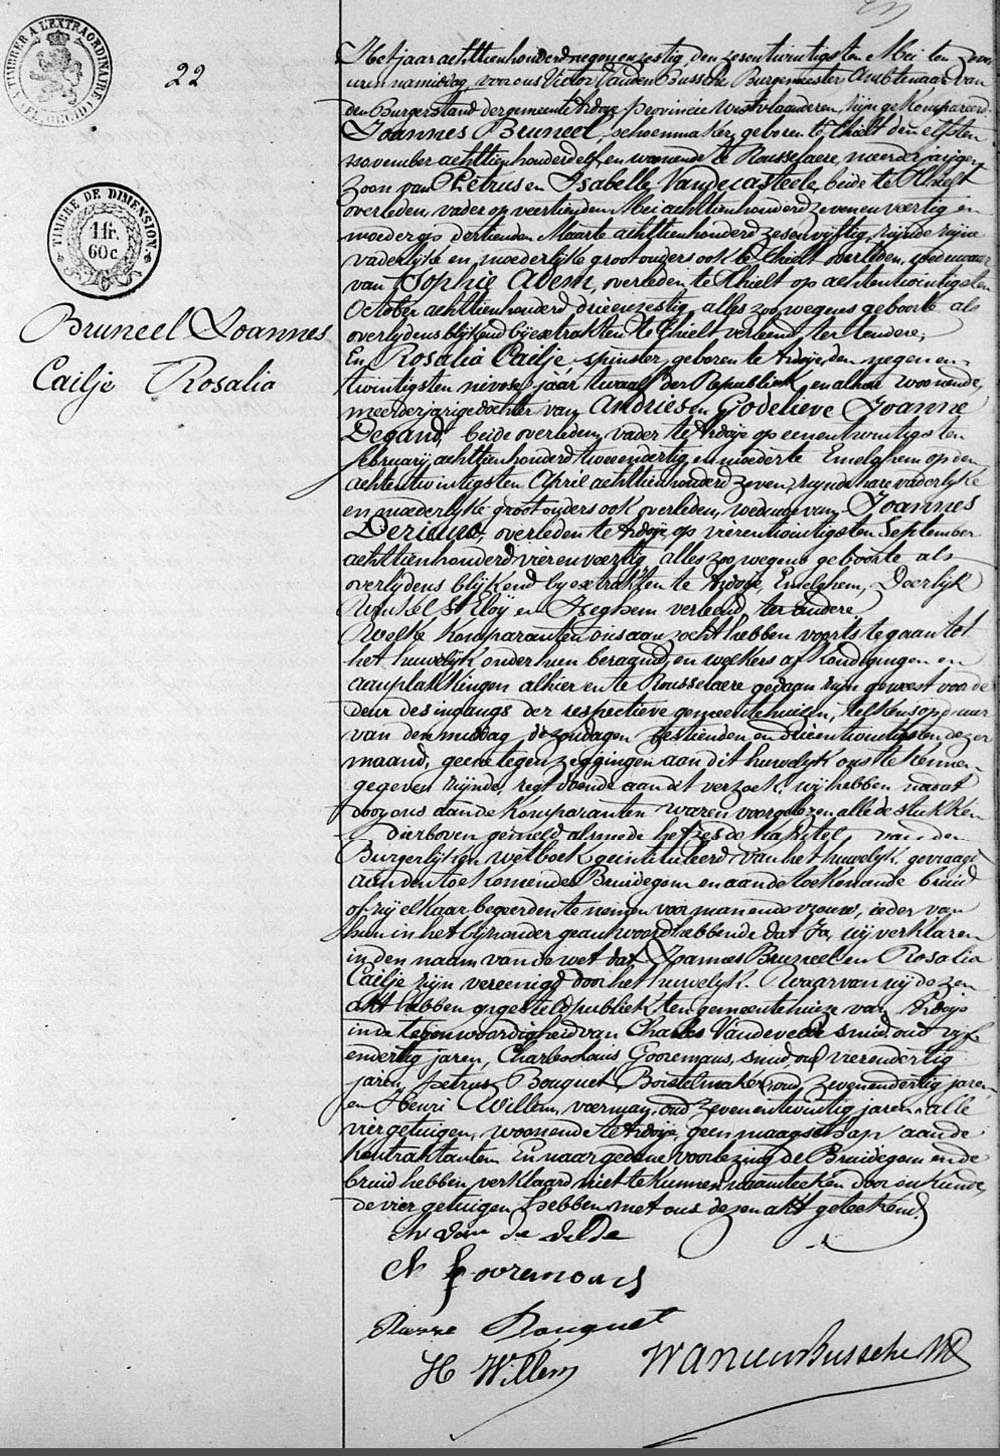 A TIMBRER A L'EXTRAORDINAIRE
22
TIMBRE DE DIMENSION
1 fr.
60 c.
Bruneel Joannes
Cailje Rosalia
Het jaar achttien honderd negenenzestig, den zesentwintigsten Mei ten
uren namiddag, voor ons Victor Vanden Bussche Burgemeester Ambtenaar van
den Burgerstand der gemeente Ardoye, provincie Westvlaanderen, zijn gekompareerd
Joannes Bruneel, schoenmaker, geboren te Thielt den elfsten
november achttien honderd elf, en woonende te Rousselaere, meerderjarigen
zoon van Petrus en Isabelle Vandecasteele, beide te Thielt
overleden, vader op veertienden Mei achttien honderd zevenenveertig en
moeder op dertienden Maarte achttien honderd zesenvijftig, zijnde zijne
vaderlijke en moederlijke grootouders ook te Thielt overleden, weduwaar
van Sophie Adem, overleden te Thielt op achtentwintigsten
October achttien honderd drieenzestig, alles zoo wegens geboorte als
overlijdens blijkend bij extrakten te Thielt verleend, ter eendere;
En Rosalia Cailje, spinster, geboren te Ardoije, den negenen-
twintigsten nivose jaar twaalf der Republiek, en alhier woonende,
meerderjarige dochter van Andries en Godelieve Joanne
Degand, beide overleden, vader te Ardoije op eenentwintigsten
february achttien honderd tweeendertig, en moeder te Emelghem op den
achtentwintigsten April achttien honderd zeven, zijnde hare vaderlijke
en moederlijke grootouders ook overleden, weduwe van Joannes
Derieuw, overleden te Ardoije op vierentwintigsten September
achttien honderd vierenveertig, alles zoo wegens geboorte als
overlijdens blijkend bij extrakten te Ardoije, Emelghem, Deerlijk
Winkel St Eloÿ en Iseghem verleend, ter andere
Welke komparanten ons aanzocht hebben voorts te gaan tot
het huwelijk onder hun beraamd, en welkers afkondigingen en
aanplakkingen alhier en te Rousselaere gedaan zijn geweest voor de
deur des ingangs der respectieve gemeentehuizen, telkens op d'uur
van den middag, de zondagen zestienden en drieentwintigsten dezer
maand, geene tegenzeggingen aan dit huwelijk ons te kennen
gegeven zijnde, regt doende aan dit verzoek, wij hebben nadat
door ons aan de komparanten waren voorgelezen alle de stukken
hierboven gemeld alsmede het zesde kapitel van den
Burgerlijken wetboek geintituleerd van het huwelijk, gevraagd
aan den toekomenden Bruidegom en aan de toekomende bruid
of zij elkaar begeerden te nemen voor man ende vrouw, ieder van
hun in het bijzonder geantwoord hebbende dat Ja, wij verklaren
in den naam van de wet dat Joannes Bruneel en Rosalia
Cailje zijn vereenigd door het huwelijk. Waarvan wij dezen
akt hebben opgesteld publiek ten gemeentehuize van Ardoije
in de tegenwoordigheid van Charles Vandevelde smid, oud vijf
endertig jaren, Charles Louis Gooremans, smid oud vierendertig
jaren, Petrus Bouquet Borstelmaker, oud zevenendertig jaren
en Henri Willem, voerman, oud zevenentwintig jaren, alle
vier getuigen, woonende te Ardoije, geen maagschap aan de
kontraktanten. En naar gedane voorlezing de Bruidegom en de
bruid hebben verklaard niet te kunnen naamteeken door onkunde,
de vier getuigen hebben met ons dezen akt geteekend.
Ch Van de Velde
Ch Gooremans
Pierre Bouquet
H Willem
VandenBussche